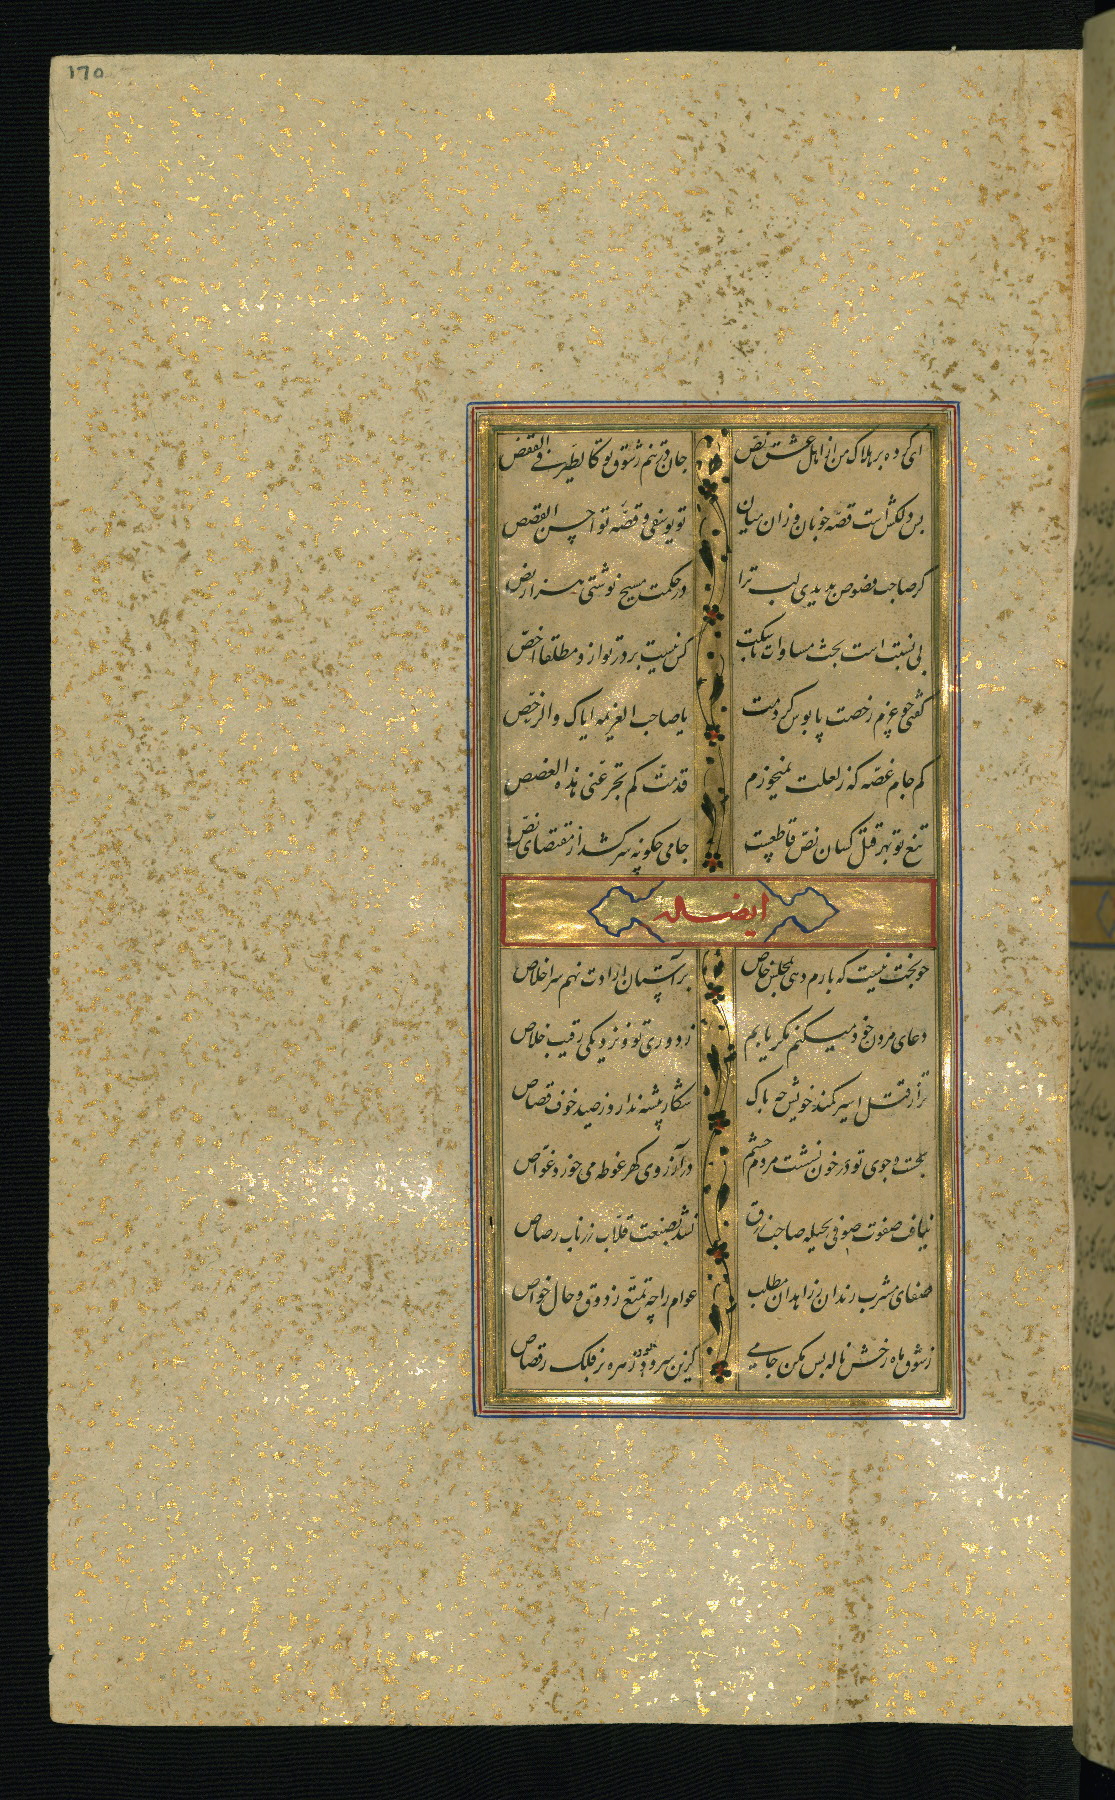 ١٦٥
ای کرده بر هلاک من از اهل عشق نص جان در تنم ز شوق تو کالطیر فی القفص
بس دلکش است قصه خوبان وزان میان تو یوسفی و قصه تو احسن القصص
گر صاحب فصوص بدیدی لب ترا در حکمت مسیح نوشتی هزار فص
بی نسبت است بحث مساوات با سگت کس نیست بر در تو از و مطلقا اخص
گفتی چو عزم رخصت پابوس کردمت یا صاحب العزیمه ایاک والرخص
کم جام غصه کز لعلت نمیخورم قدمت کم تجرعنی هذه الغصص
تیغ تو بهر قتل کسان نص قاطعست جامی چگونه سر کشد از مقتضای نص
ایضا له
چو بخت نیست که بارم دهی بمجلس خاص بر آستان ارادت نهم سر اخلاص
دعای مردن خود میکنم مگر یابم ز دوری تو و نزدیکی رقیب خلاص
ترا ز قتل اسیر کمند خویش چه باک شکار پیشه ندارد ز صید خوف قصاص
بجست و جوی تو در خون نشست مردم چشم در آرزوی گهر غوطه می خورد غواص
نیافت صفوت صوفی بحیله صاحب زرق نشد بصنعت قلاب زر ناب رصاص
صفای مشرب رندان ز زاهدان مطلب عوام را چه تمتع ز ذوق و حال خواص
ز شوق ماه رخش ناله بس مکن جامی کزین سرود بود زهره بر فلک رقاص